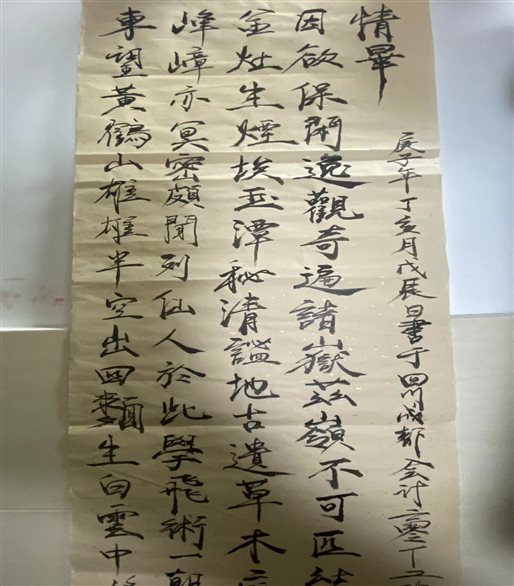 東望黃鶴山雄雄半空出四面生白雲中
峰嶂亦冥密頗聞列仙人於此學飛術一朝
金灶生煙埃玉潭秘清謐地古遺草木
因欲保閑逸觀奇遍諸嶽茲嶺不可匹
情畢
庚子年丁亥月戊辰日書于四川成都会计